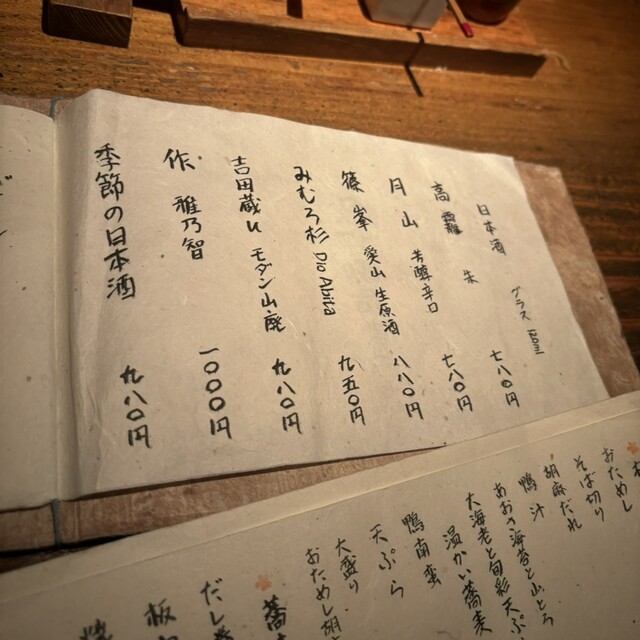 日本酒 グラス 120ml
高 朱 七八〇円
月山 芳醇辛口 七八〇円
篠峯 愛山 生原酒 八八〇円
みむろ杉 Dio Abita 九五〇円
吉田蔵u モダン山廃 九八〇円
作 雅乃智 一〇〇〇円
季節の日本酒 九八〇円
おためし
そば切り
胡麻だれ
鴨汁
あおさ海苔と山とろ
大海老と旬彩天ぷ
温かい蕎麦
鴨南蛮
天ぷら
大盛り
おためし胡
蕎
だし
板